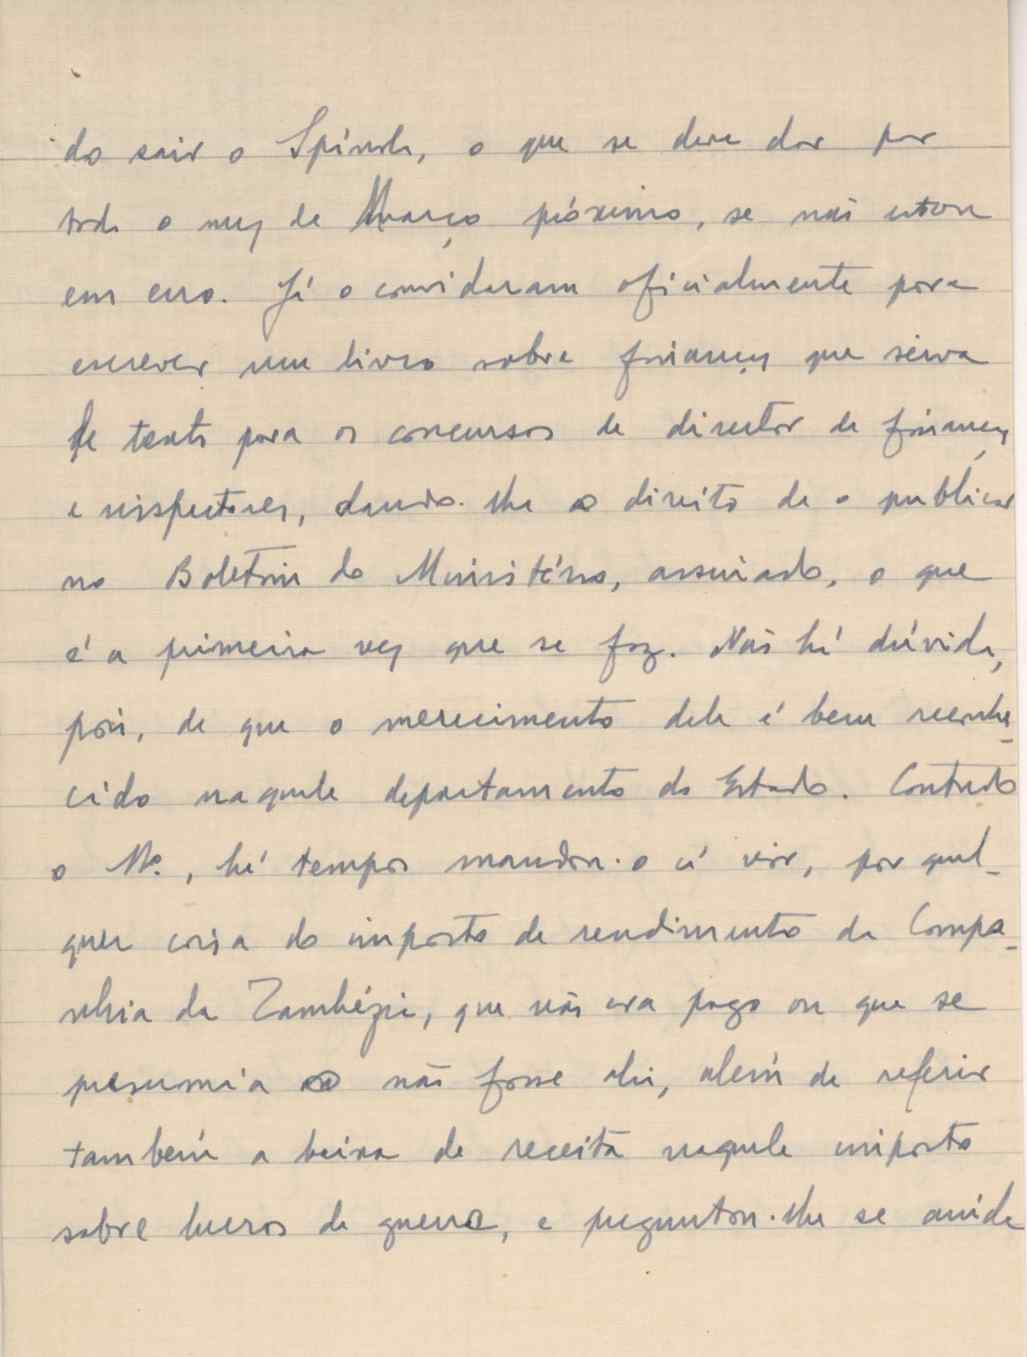 do sair o Spínola, o que se deve dar por
todo o mez de Março próximo, se não estou
em erro. Já o convidaram oficialmente para
escrever um livro sobre finanças que sirva
de texto para os concursos de director de finanças
e inspectores, dando-lhe o direito de o publicar
no Boletim do Ministério, assinado, o que
é a primeira vez que se faz. Não há dúvida,
pois, de que o merecimento dele é bem reconhe-
cido naquele departamento do Estado. Contudo
o Mº., há tempos mandou-o cá vir, por qual-
quer coisa do imposto de rendimento da Compa-
nhia da Zambézia, que não era pago ou que se
presumia não fosse ali, além de referir
também a baixa de receita naquele imposto
sobre lucros de guerra, e preguntou-lhe se ainda